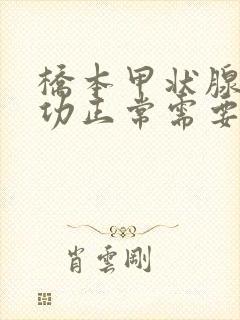 橋本甲状腺
功正常需要
肖雲剛